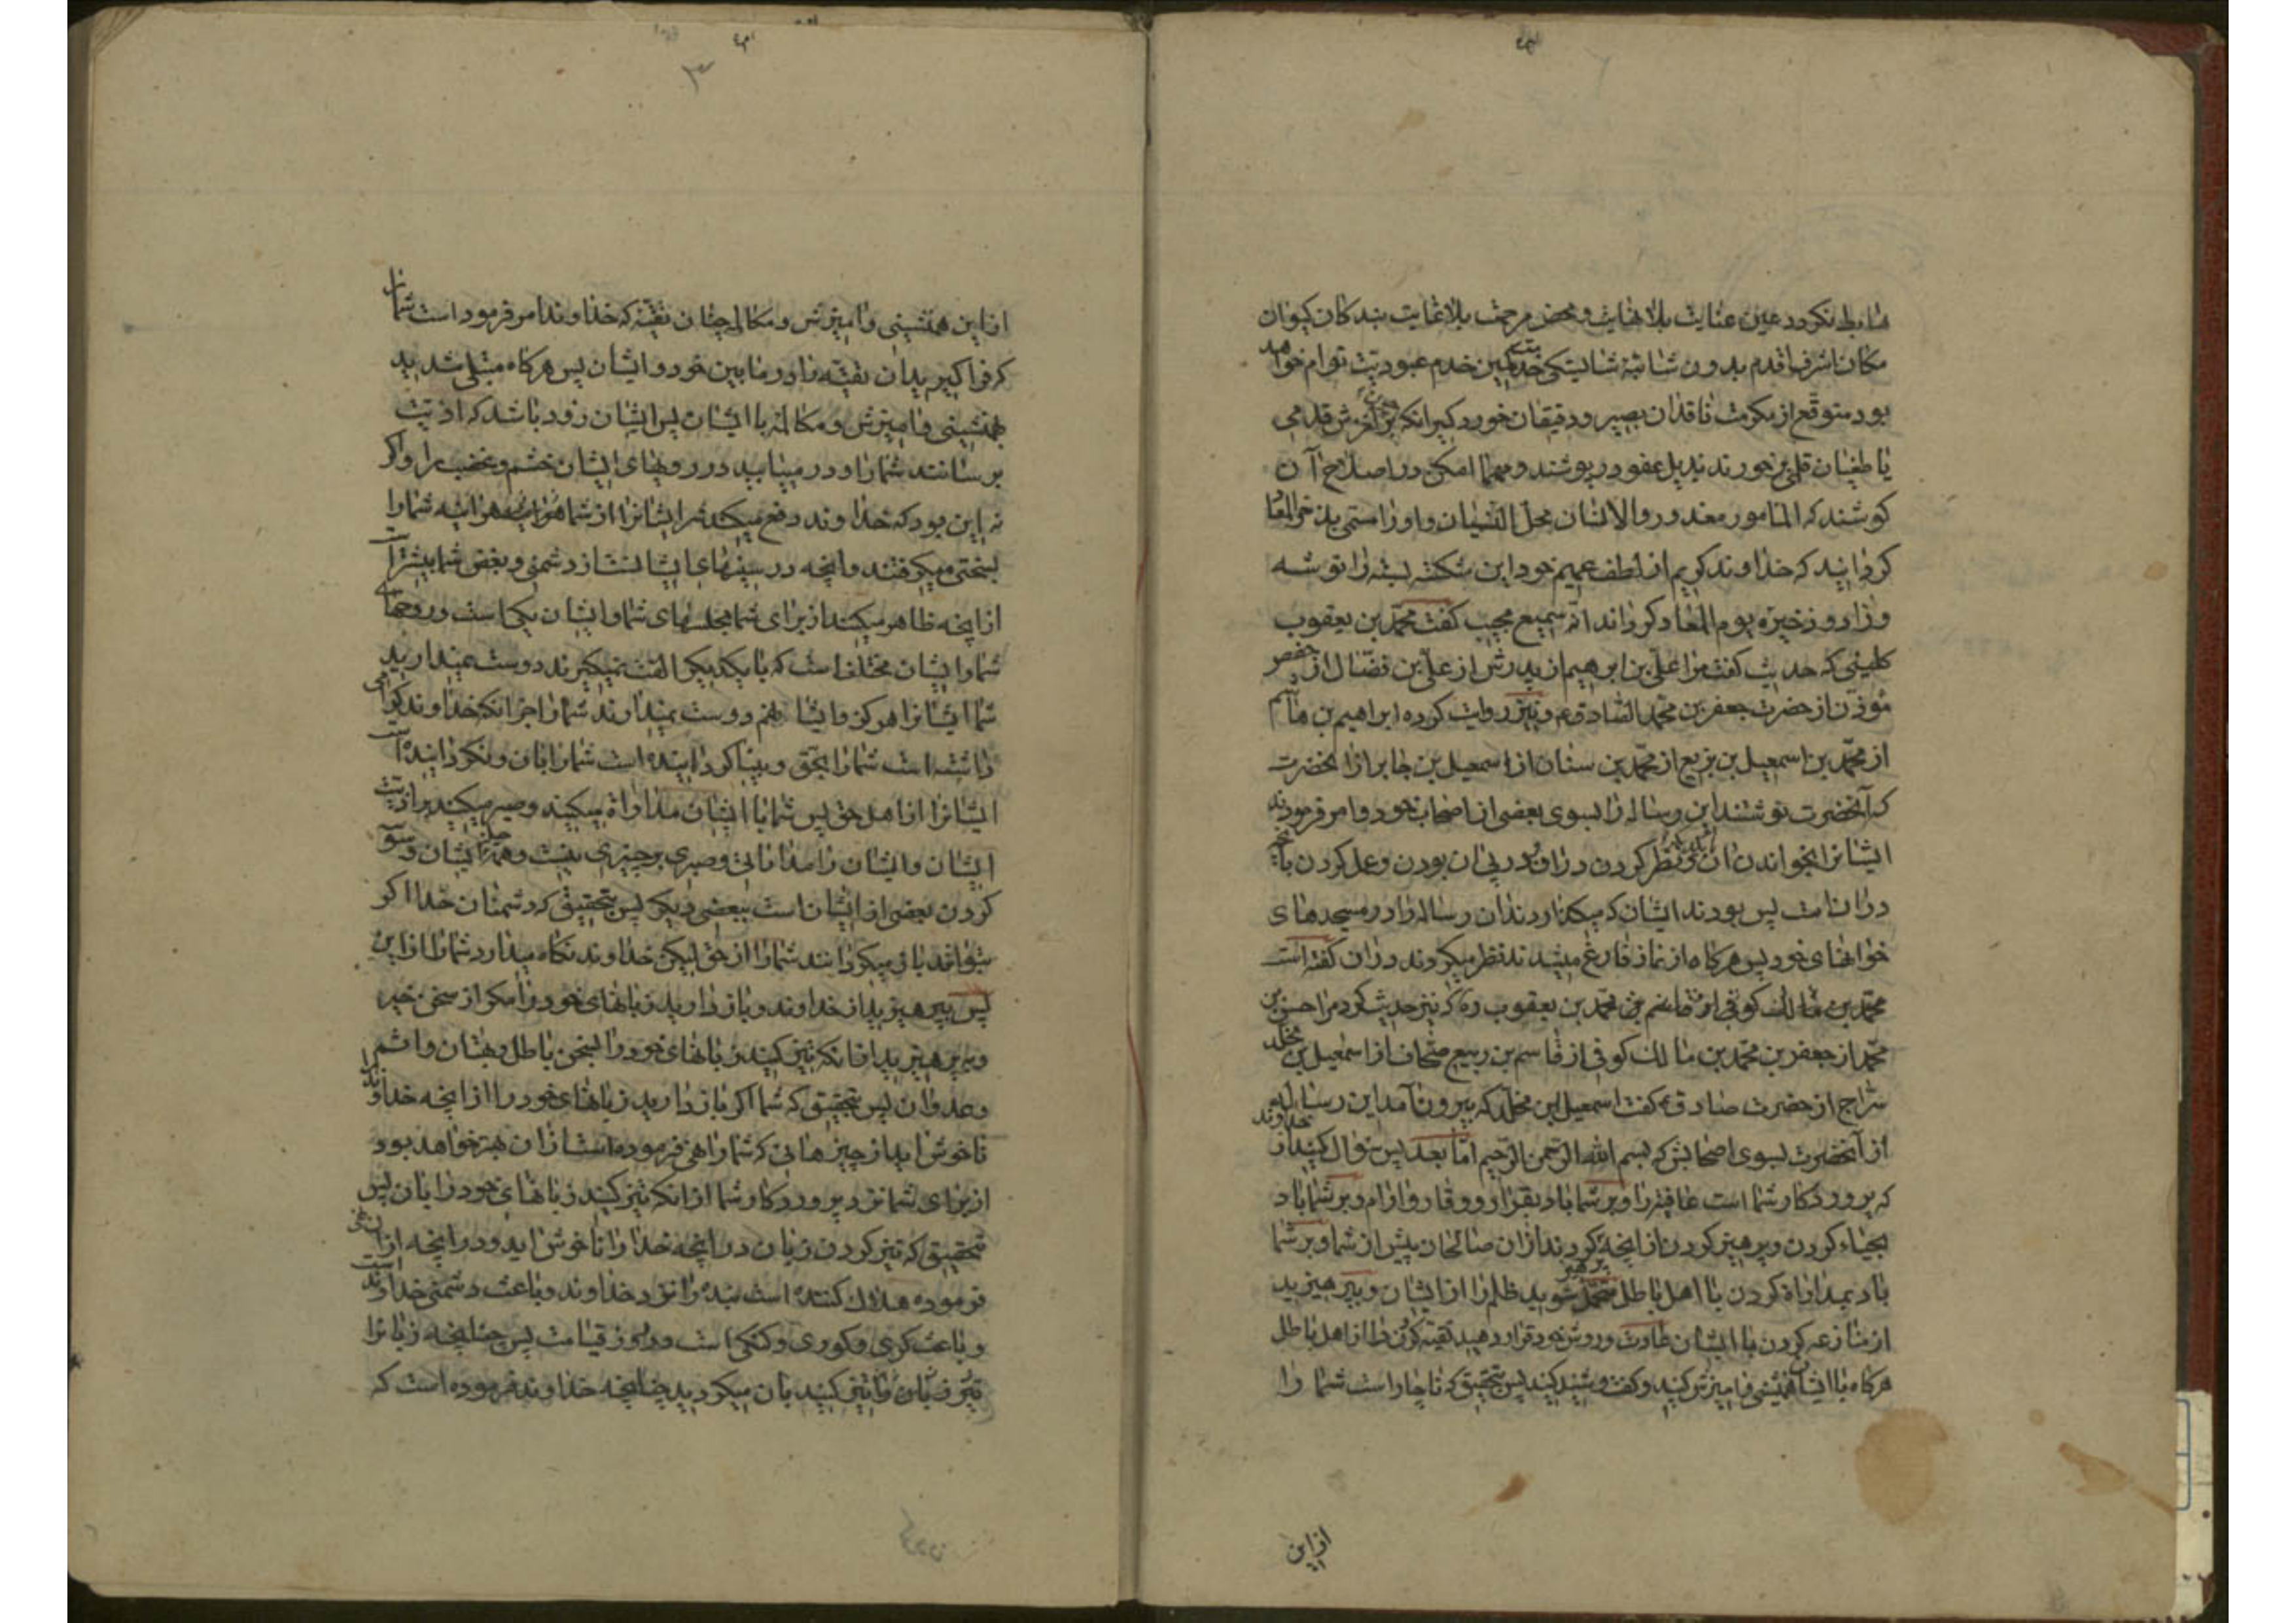 هابط نکردد عین عنایت بلا نهایت و محض مرحمت بلا غایت بندکان کیوان
مکان اشرف اقدم بدون شائبۀ شایستکی خدمتی کمین خدم عبودیت توام خواهد
بود متوقع از مکرمت ناقدان بصیر و دقیقان خورده کیر انکه بر لغزش قدمی
یا طغیان قلمی برخورند بذیل عفو در پوشند و مهما امکن در اصلاح آن
کوشند که المامور معذور والانسان محل النسیان و او را مستمی به
کردانید که خداوند کریم از لطف عمیم خود این شکسته بسته را توشه
وزاد و ذخیره یوم المعاد کرداند انه سمیع مجیب کفت محمد بن یعقوب
کلینی که حدیث کفت مرا علی بن ابرهیم از پدرش از علی بن فضال از حفص
مؤذن از حضرت جعفر بن محمد الصادق ع و نیز روایت کرده ابراهیم بن هاشم
از محمد بن اسمعیل بن بزیع از محمد بن سنان از اسمعیل بن جابر از انحضرت
که آنحضرت نوشتند این رساله را بسوی بعضی از اصحاب خود و امر فرمودند
ایشانرا بخواندن ان و نظر کردن در ان و در پی ان بودن و عمل کردن بانچه
در ان است پس بودند ایشان که میکذاردند ان رساله را در مسجدهای
خوانهای خود پس هرکاه از نماز فارغ میشدند نظر میکردند در ان کفته است
محمد بن یعقوب ره که نیز حدیث کرد مرا حسن بن
محمد از جعفر بن محمد بن مالک کوفی از قاسم بن ربیع صحاف از اسمعیل بن مخلد
سراج از حضرت صادق ع کفت اسمعیل ابن مخلد که بیرون آمد این رساله
از آنحضرت بسوی اصحابش که بسم الله الرحمن الرحیم اما بعد پس سؤال کنید از خداوند
که پروردکار شما است عافیترا و بر شما باد بقرار و وقار و ارام و بر شما باد
بحیاء کردن و پرهیز کردن از انچه کردند از ان صالحان پیش از شما و بر شما
باد بمداراة کردن با اهل باطل متحمل شوید ظلم را از ایشان و بپرهیزید
از منازعه کردن با ایشان عادت و روش خود قرار دهید تقیه کردن را از اهل باطل
هرکاه با ایشان همنشینی و امیزش کنید و کفت و شنید کنید پس بتحقیق که ناچار است شما را
از این
از این همنشینی و امیزش و مکالمه چنان تقیه که خداوند امر فرموده است شما را
که فرا کیرید ان تقیه را در ما بین خود و ایشان پس هرکاه مبتلی شدید
بهمنشینی و امیزش و مکالمه با ایشان پس ایشان زود باشد که اذیت
برسانند شما را و در میابید در رویهای ایشان خشم و غضب را و اکر
نه این بود که خداوند دفع میکند شر ایشانرا از شما هر اینه شما را
بسختی میکرفتند و انچه در سینهای ایشانست از دشمنی و بغض شما بیشتر است
از انچه ظاهر میکنند از برای شما مجلسهای شما و ایشان یکی است و روحهای
شما و ایشان مختلف است که با یکدیکر الفت نمیکیرند دوست نمیدارید
شما ایشانرا هرکز و ایشان هم دوست نمیدارند شما را جز انکه خداوند کرامی
داشته است شما را بحق و بینا کردانیده است شما را بان و نکردانیده است
ایشانرا از اهل حق پس شما با ایشان مداراة میکنید و صبر میکنید بر اذیت
ایشان و ایشان را مدارائی و صبری بر چیزی نیست و حیله ایشان وسوسه
کردن بعضی از ایشان است ببعضی دیکر پس بتحقیق که دشمنان خدا اکر
بتوانند باز میکردانند شما را از حق لیکن خداوند نکاه میدارد شما را از این
پس بپرهیزید از خداوند و باز دارید زبانهای خود را مکر از سخن خیر
و بپرهیزید از انکه تیز کنید زبانهای خود را بسخن باطل و بهتان و اثم
و عدوان پس بتحقیق که شما اکر باز دارید زبانهای خود را از انچه خداوند را
ناخوش اید از چیزهائی که شما را نهی فرموده است از ان بهتر خواهد بود
از برای شما نزد پروردکار شما از انکه تیز کنید زبانهای خود را بان پس
بتحقیق که تیز کردن زبان در انچه خدا را ناخوش اید و در انچه از ان نهی
فرموده هلاک کننده است بنده را نزد خداوند و باعث دشمنی خداوند است
و باعث کری و کوری و کنکی است در روز قیامت پس چنانچه زبانرا
تیز کنید بان میکردید چنانچه خداوند فرموده است که